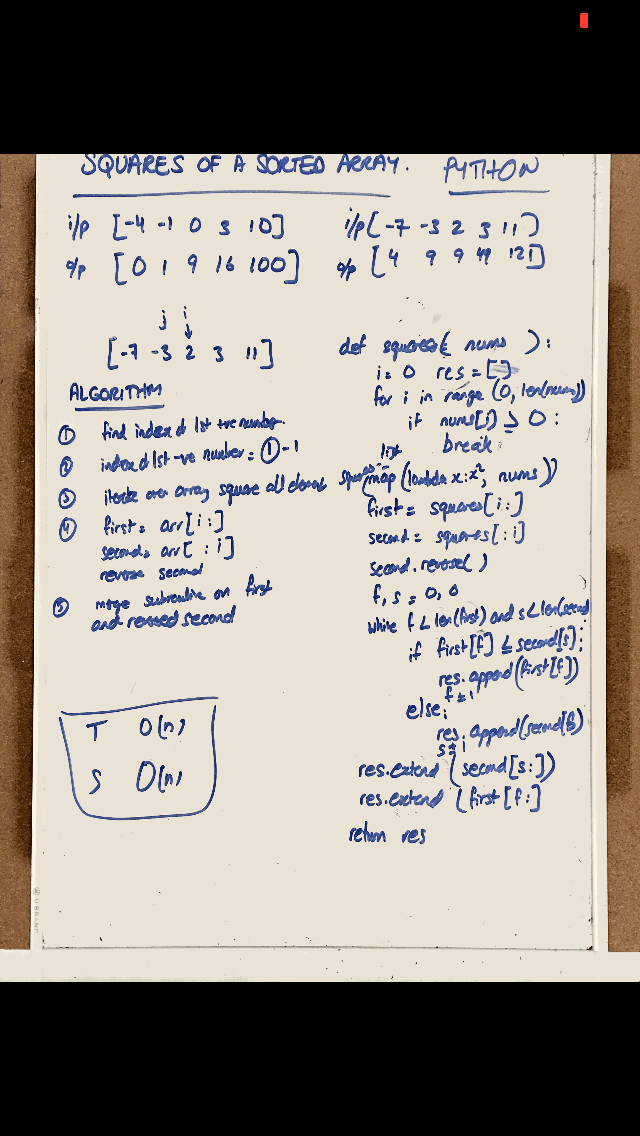 SQUARES OF A SORTED ARRAY.
PYTHON
i/p [-4 -1 0 3 10]
o/p [0 1 9 16 100]
i/p [-7 -3 2 3 11]
o/p [4 9 9 49 121]
j i
[-7 -3 2 3 11]
ALGORITHM
① find index of 1st +ve number.
② index of 1st -ve number = ① - 1
③ iterate over array square all
④ first = arr[i:]
second = arr[:i]
reverse second
⑤ merge subroutine on first
and reversed second
T O(n)
S O(n)
def squares( nums ):
i = 0 res = []
for i in range (0, len(nums))
if nums[i] ≥ 0 :
break
list
squares = map(lambda x: x², nums))
first = squares[i:]
second = squares[:i]
second.reverse( )
f, s = 0, 0
while f < len(first) and s < len(second
if first[f] ≤ second[s]:
res.append(first[f])
f += 1
else:
res.append(second[s])
s += 1
res.extend (second[s:])
res.extend (first[f:]
return res
URBANT